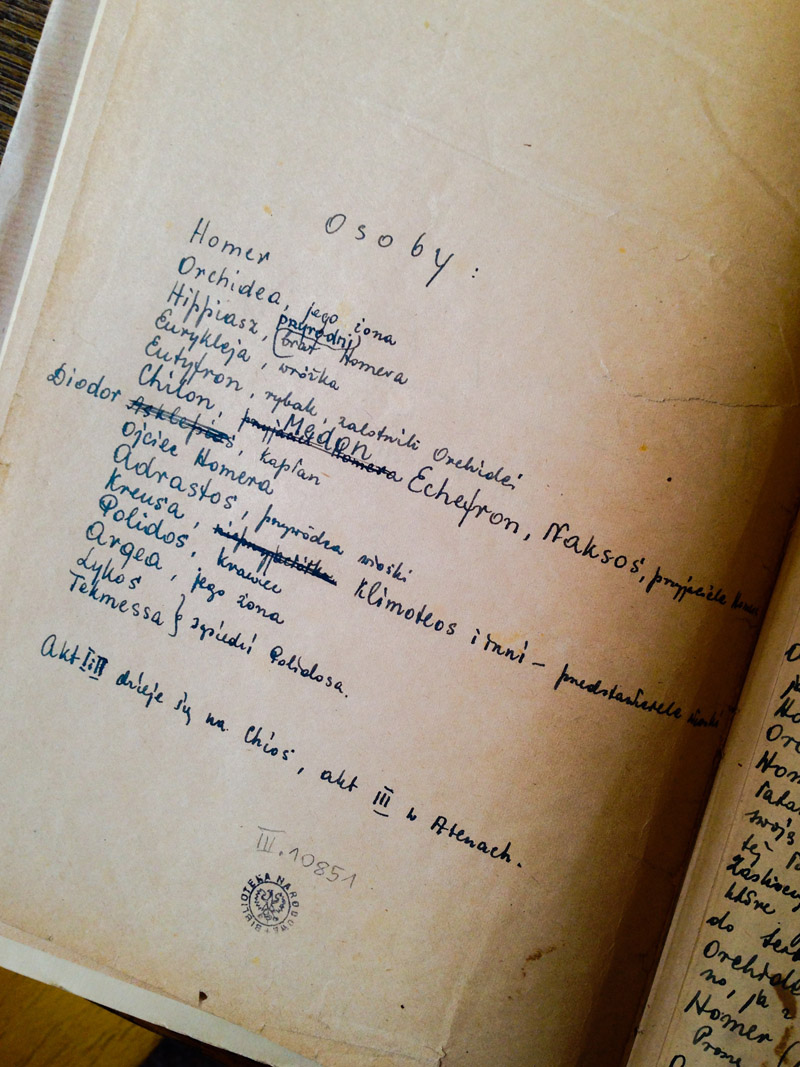 Osoby:
Homer
Orchidea, jego żona
Hippiasz, (przyrodni) brat Homera
Eurykleja, wróżka
Eutyfron, rybak, zalotnik Orchidei
Chilon, Medon, Echefron, Naksos, przyjaciele Homera
Diodor, kapłan
Ojciec Homera
Adrastos, przywódca wioski
Kreusa, Klimoteos i inni – przedstawiciele wioski
Polidos, krawiec
Argea, jego żona
Lykos
Tekmessa } sąsiedzi Polidosa.
Akt I i II dzieje się na Chios, akt III w Atenach.
III.10851
BIBLIOTEKA NARODOWA
Orchide
no, ja z
Homer (